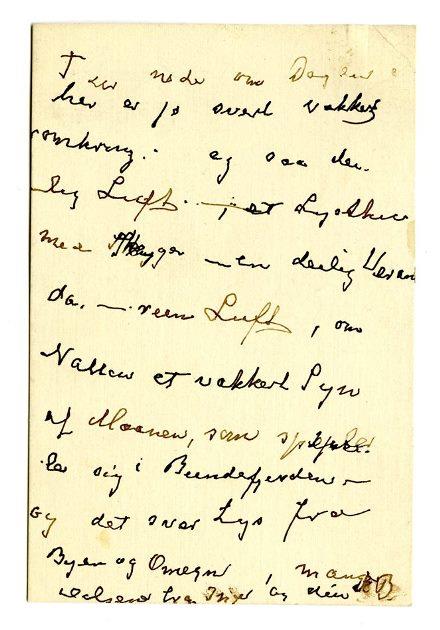 I er nede om Dagen
her er jo svert vakkert
omkring. og saa dei
lig Luft. — et Lysthus
med Skygge — en deilig Veran
da. — reen Luft, om
Natten et vakkert Syn
af Maanen, som speiler
sig i Bundefjorden —
og det svar Lys fra
Byen og Omegn, mange
og din